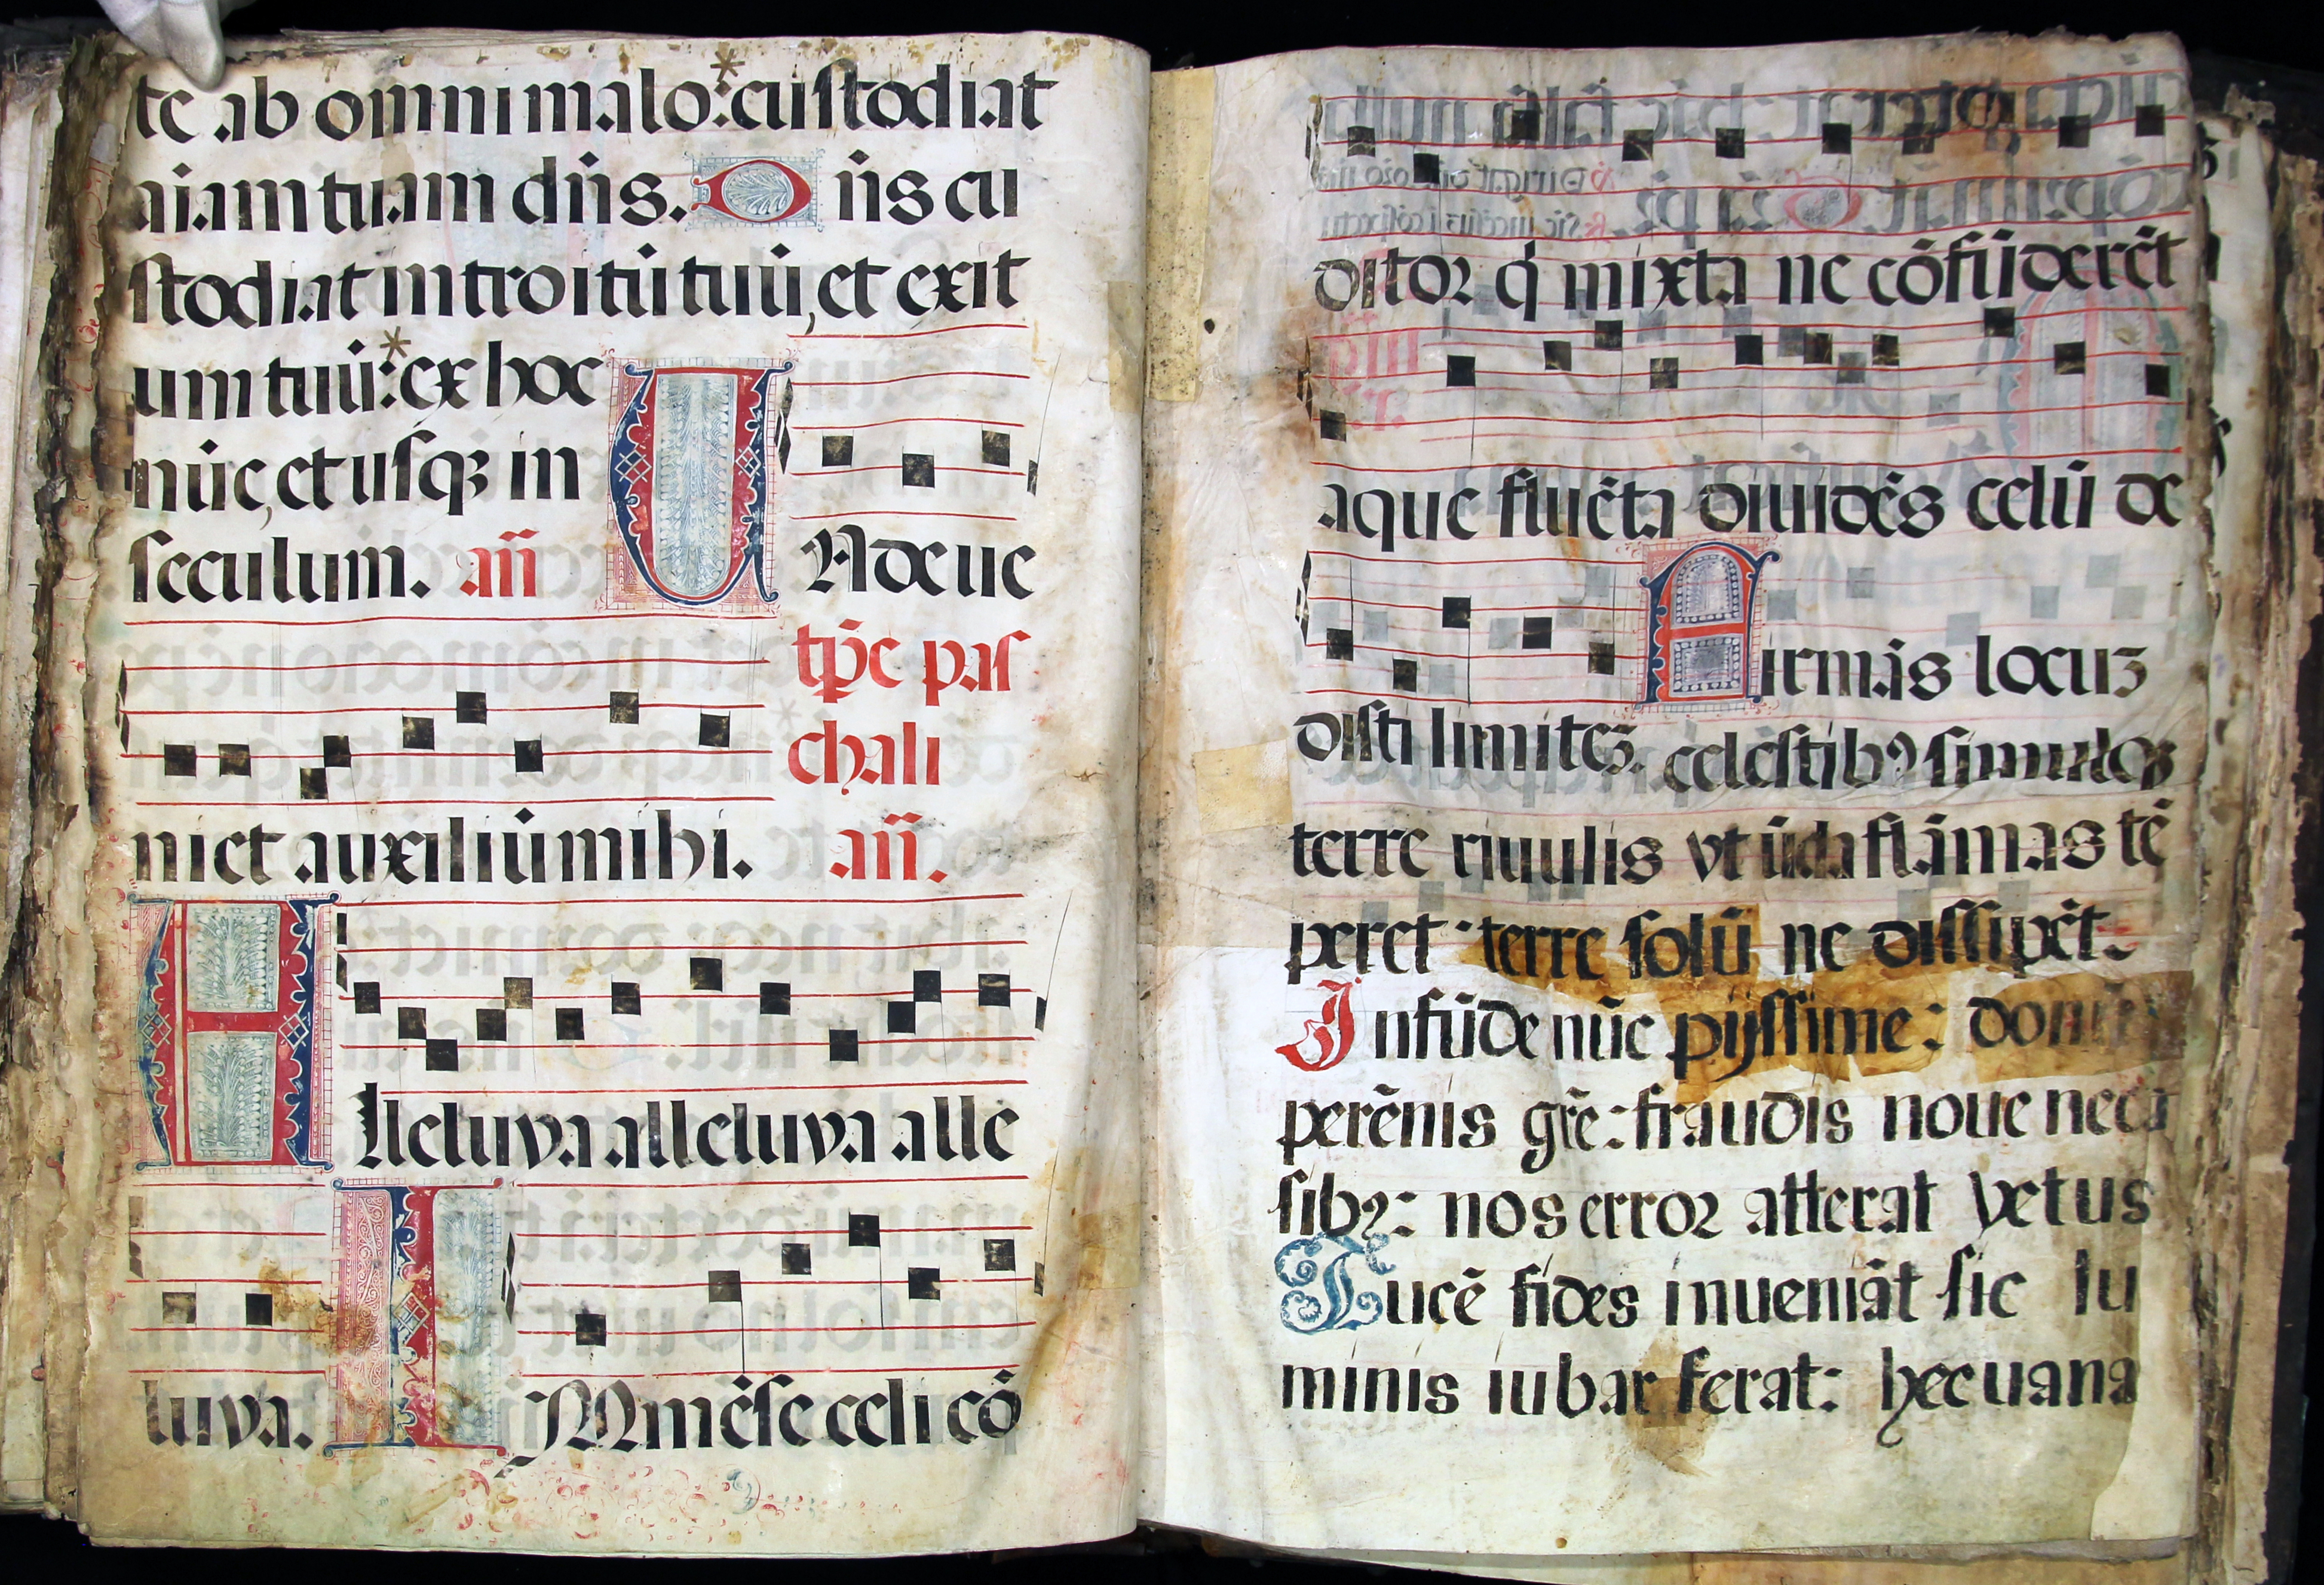 te ab omni malo:*custodiat
aiam tuam dn̄s. Dn̄s cu
stodiat introitū tuū, et exit
um tuū:*ex hoc
nūc, et usqꝫ in
seculum. an̄ UNde ue
tp̄e pas
chali
niet auxiliū mihi. an̄.
Alleluya alleluya alle
luya. IMmēse celi cō
ditor q̇ mixta ne cōfūderēt
aque fluēta diuidēs celū de
disti limitē. Firmās locuꝫ
celestibꝰ simulqꝫ
terre riuulis vt ūda flāmas tē
peret: terre solū ne dissipēt.
Infūde nūc pijssime: donū
perēnis grē: fraudis noue ne ca
sibꝫ: nos error atterat vetus
Lucē fides inueniāt sic lu
minis iubar ferat: hec uana